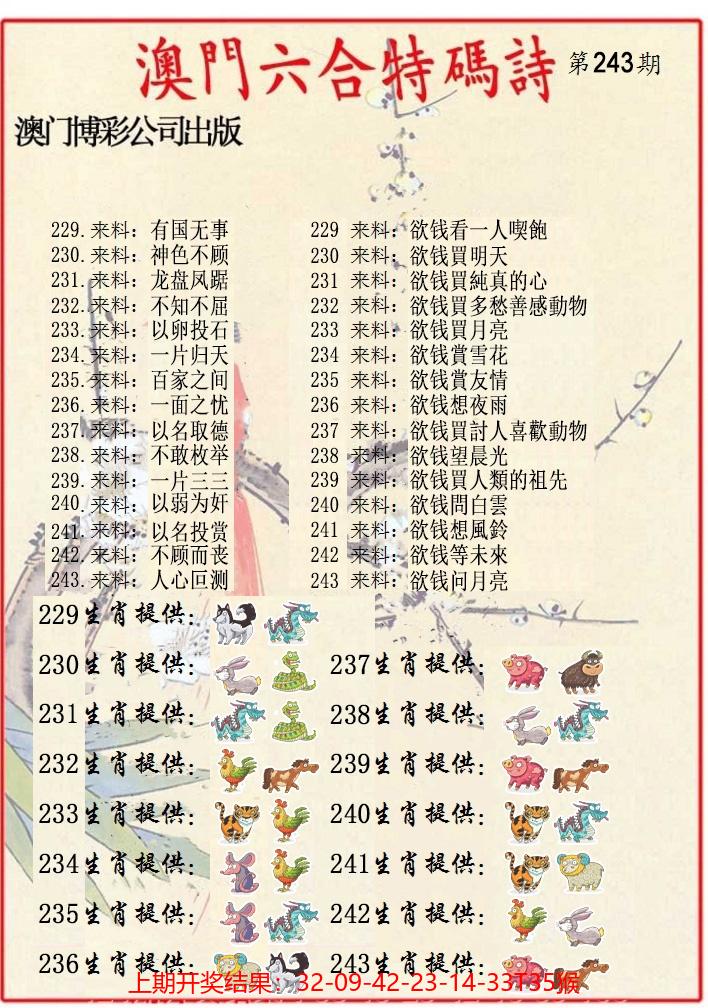 澳門六合特碼詩 第243期
澳门博彩公司出版
229.来料：有国无事
230.来料：神色不顾
231.来料：龙盘凤踞
232.来料：不知不屈
233.来料：以卵投石
234.来料：一片归天
235.来料：百家之间
236.来料：一面之忧
237.来料：以名取德
238.来料：不敢枚举
239.来料：一片三三
240.来料：以弱为奸
241.来料：以名投赏
242.来料：不顾而丧
243.来料：人心叵测
229 来料：欲钱看一人喫飽
230 来料：欲钱買明天
231 来料：欲钱買純真的心
232 来料：欲钱買多愁善感動物
233 来料：欲钱買月亮
234 来料：欲钱賞雪花
235 来料：欲钱賞友情
236 来料：欲钱想夜雨
237 来料：欲钱買討人喜歡動物
238 来料：欲钱望晨光
239 来料：欲钱買人類的祖先
240 来料：欲钱問白雲
241 来料：欲钱想風鈴
242 来料：欲钱等未來
243 来料：欲钱问月亮
229生肖提供：
230生肖提供：
231生肖提供：
232生肖提供：
233生肖提供：
234生肖提供：
235生肖提供：
236生肖提供：
237生肖提供：
238生肖提供：
239生肖提供：
240生肖提供：
241生肖提供：
242生肖提供：
243生肖提供：
上期开奖结果：32-09-42-23-14-33T35猴